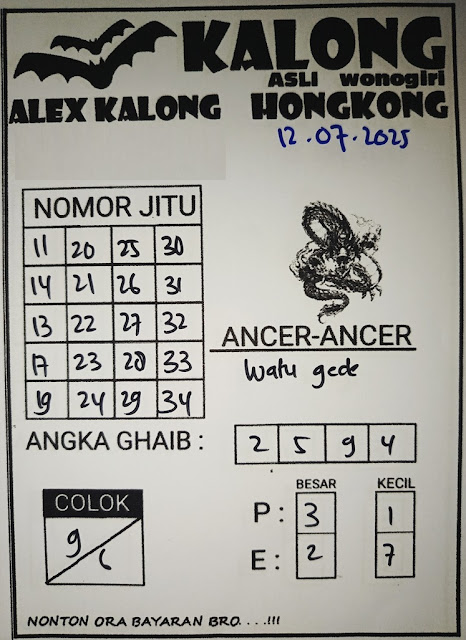 KALONG
ASLI wonogiri
ALEX KALONG HONGKONG
12.07.2025
NOMOR JITU
11 20 25 30
14 21 26 31
13 22 27 32
17 23 28 33
19 24 29 34
ANCER-ANCER
Watu gede
ANGKA GHAIB : 2 5 9 4
BESAR KECIL
COLOK
P : 3 1
9 6
E : 2 7
NONTON ORA BAYARAN BRO. . . .!!!